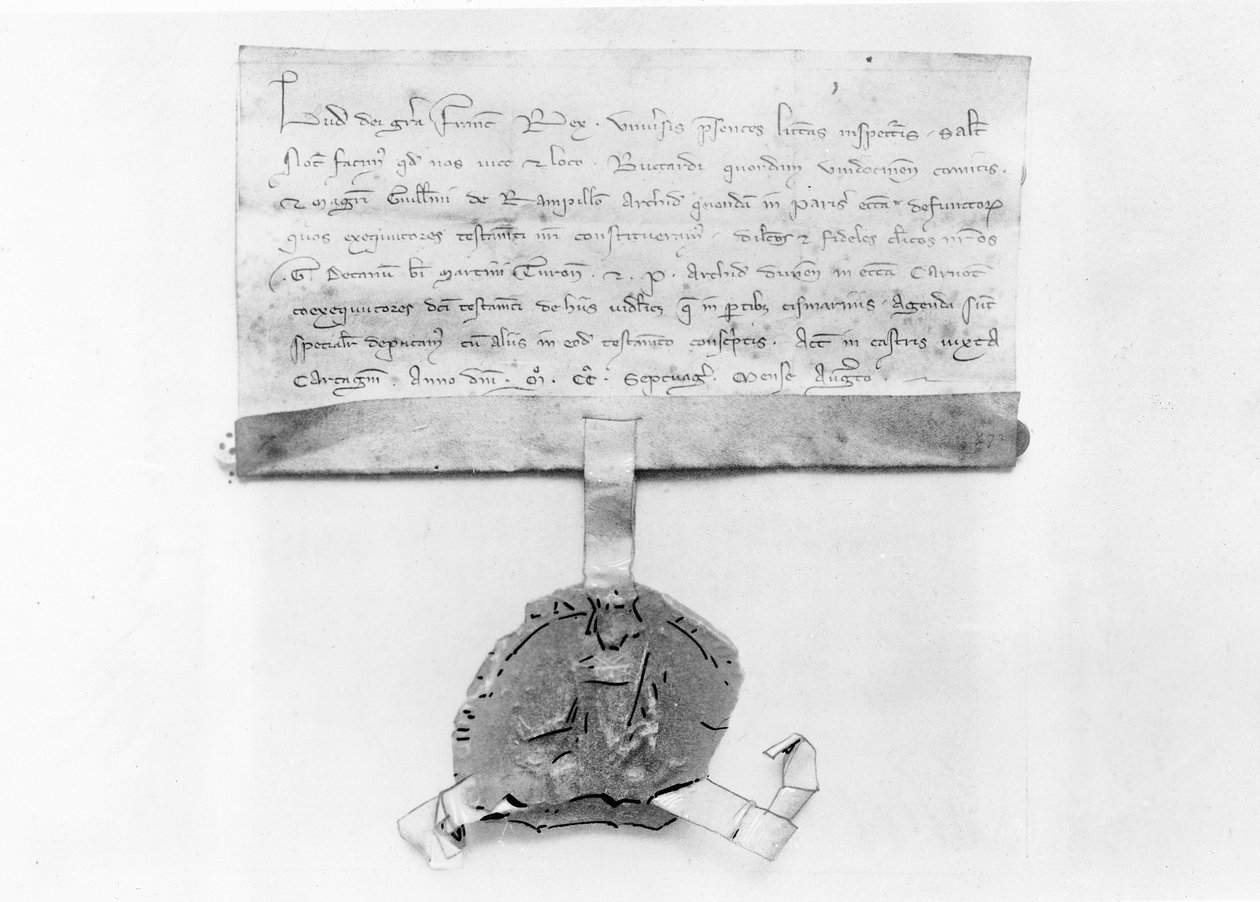 Lud dei gr̄a Franc̄ Rex . Univ̄sis p̄sentes litt̄as inspectur̄is . Sal̄t
Not̄ facim⁹ qd̄ nos vice ⁊ loco . Buccardi quondam vindocinen̄ comitis .
⁊ Magr̄i Guill̄mi de Rampill̄o Archid̄ quondā in Paris̄ ecc̄a defunctoꝝ
quos exequutores testam̄ti nr̄i constitueram⁹ . dil̄cos ⁊ fideles cl̄icos nr̄os
.G. Decanū bī Martini Turon̄ . ⁊ . P . Archid̄ dunen̄ in ecc̄a Carnot̄
coexequutores dc̄i testam̄ti de hiis vidl̄icꝫ q̄ in p̄tibꝫ cismarinis . Agenda sūt
specialīt deputam⁹ cū aliis in eod̄ testam̄to consc̄ptis . Act̄ in castris iuxta
Cartagin̄ . Anno dn̄i . M̊ . CC̊ . Septuag̊ . Mense Aug̊to .